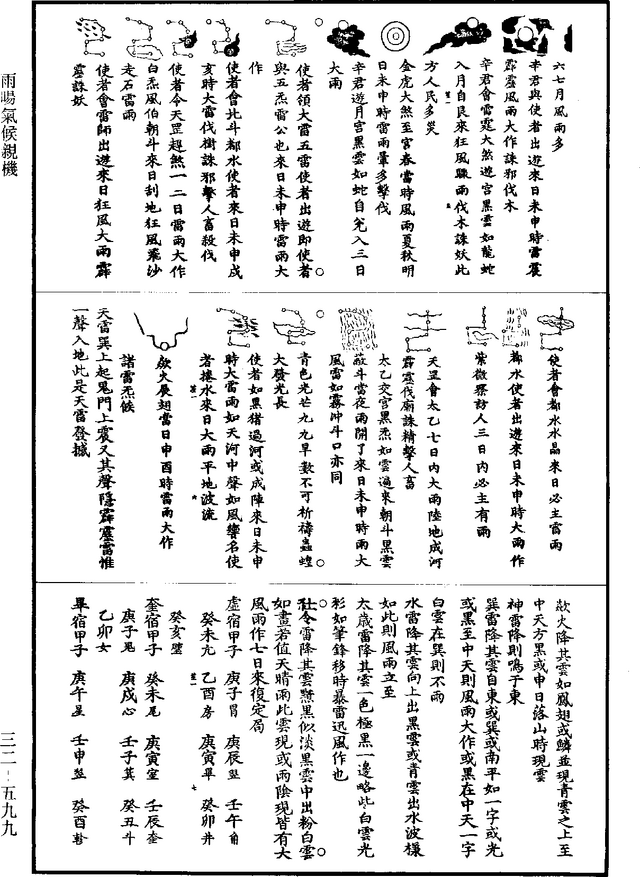 雨暘氣候親機
三二-五九九
六七月風雨多
辛君與使者出遊來日未申時雷震
霹靂風雨大作誅邪伐木
辛君會雷霆大煞遊宮黑雲如龍蛇
入月自艮來狂風驟雨伐木誅妖此
方人民多災
金虎大煞至宮春當時風雨夏秋明
日未申時雷雨暈多擊伐
辛君遊月宮黑雲如蛇自兌入三日
大雨
使者領大雷五雷使者出遊即使者
與五炁雷公也來日未申時雷雨大
作
使者會北斗都水使者來日未申戌
亥時大雷伐樹誅邪擊人畜殺伐
使者今天罡趕煞一二日雷雨大作
白炁風伯朝斗來日刮地狂風飛沙
走石雷雨
使者會雷師出遊來日狂風大雨霹
靂誅妖
使者會都水水晶來日必主雷雨
都水使者出遊來日未申時大雨作
紫微察訪人三日內必主有雨
天罡會太乙七日內大雨陸地成河
霹靂伐廟誅精擊人畜
太乙交宮黑炁如雲遍來朝斗黑雲
蔽斗當夜雨開了來日未申時雨大
風雷如霧沖斗口亦同
青色光芒九九旱數不可祈禱蟲蝗
大發光長
使者如黑猪過河或成陣來日未申
時大雷雨如天河中聲如風響名使
者捲水來日大雨平地波流
歘火展翅當日申酉時雷雨大作
諸雷炁候
天雷巽上起鬼門上震又其聲隱霹靂雷惟
一聲入地此是天雷發撼
歘火降其雲如鳳翅或鱗並現青雲之上至
中天方黑或申日落山時現雲
神雷降則鳴于東
巽雷降其雲自東或巽或南平如一字或光
或黑至中天則風雨大作或黑在中天一字
白雲在巽則不雨
水雷降其雲向上出黑雲或青雲出水波樣
如此則風雨立至
太歲雷降其雲一色極黑一邊略些白雲光
彩如筆鋒移時暴雷迅風作也
社令雷降其雲黑黑似淡黑雲中出粉白雲
如畫若值天晴雨此雲現或雨陰現皆有大
風雨作七日來復定局
虛宿甲子 庚子胃 庚辰 壬午角
癸未亢 乙酉房 庚寅畢 癸卯井
癸亥壁
奎宿甲子 癸未尾 庚寅室 壬辰奎
庚子 庚戌心 壬子箕 癸丑斗
乙卯女
畢宿甲子 庚午星 壬申 癸酉